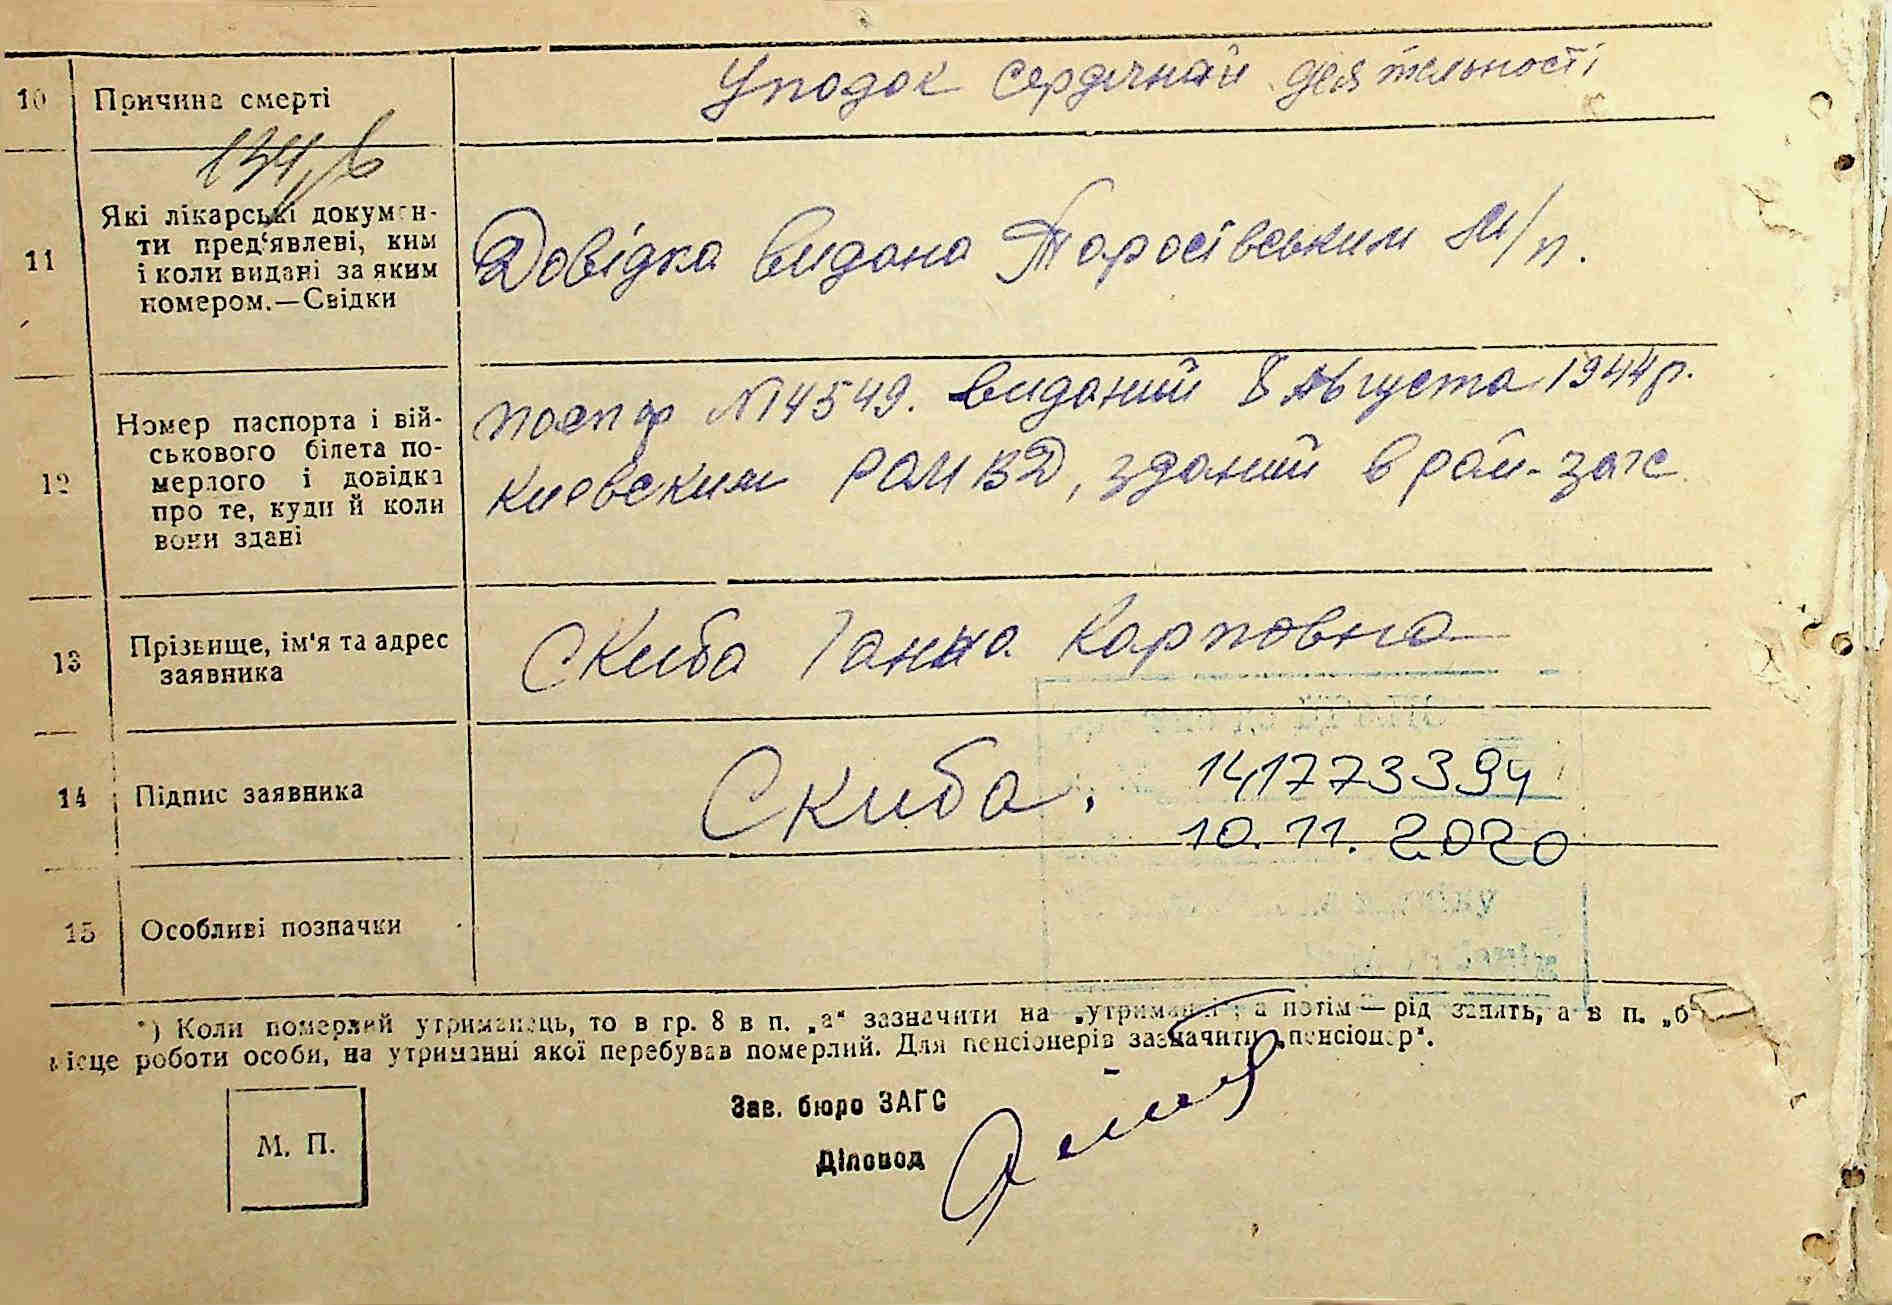 10 Причина смерті Уподок сердечнай деятельності
134,б
11 Які лікарські докумен-
ти пред'явлеві, ким
і коли видані за яким
номером.—Свідки
Довідка видана Таросівським М/п.
12 Номер паспорта і вій-
ськового білета по-
мерлого і довідка
про те, куди й коли
вони здані
№4549. виданий 8 Августа 1944р.
Киевским РОМВД, зданий в рай-загс
13 Прізвище, ім'я та адрес
заявника
Скиба Ганна Карповна
14 Підпис заявника Скиба.
141773394
10.11.2020
15 Особливі позначки
*) Коли померлий утриманець, то в гр. 8 в п. „а“ зазначити на „утриманні“, а потім — рід занять, а в п. „б“
місце роботи особи, на утриманні якої перебував померлий. Для пенсіонерів зазначити „пенсіонер“.
М. П.
Зав. бюро ЗАГС
Діловод